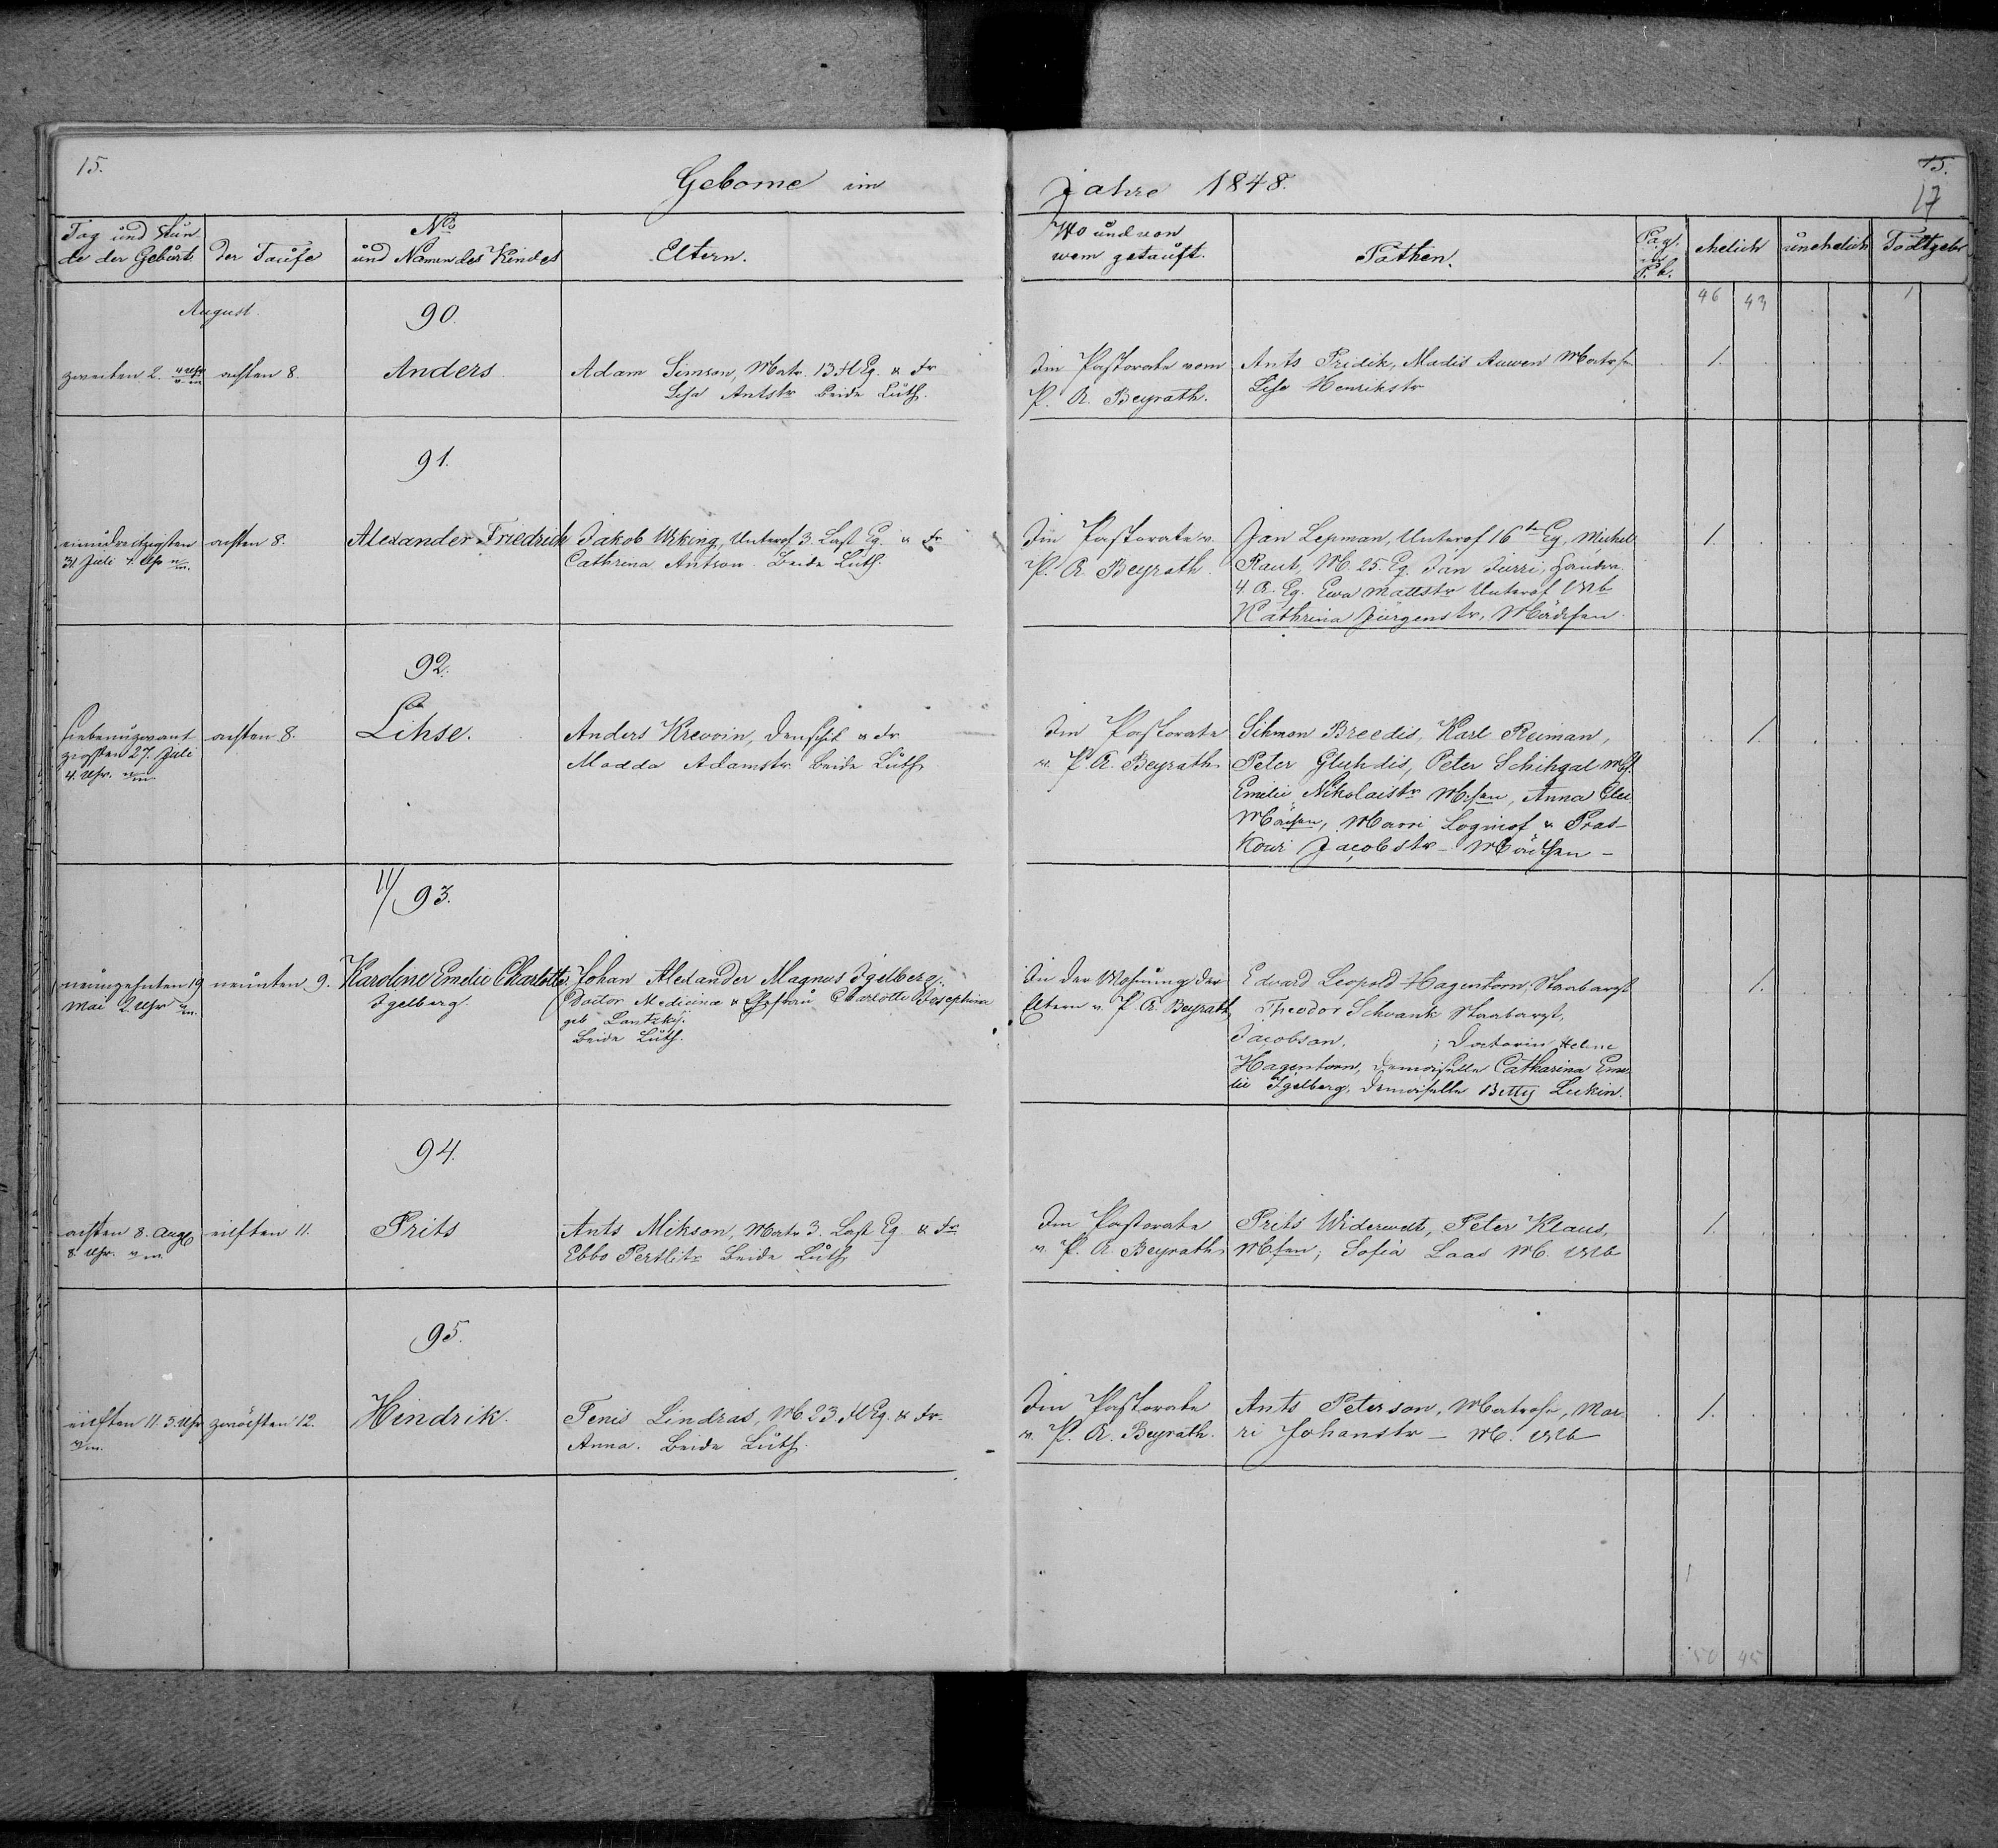 15.
Geborne im
Jahre 1848.
15.
17
Tag und Stun
de der Geburt
der Taufe
No
und Namen des Kindes
Eltern.
Wo und von
wem getauft.
Pathen.
Pag.
P. b.
ehelich
unehelich
Todtgeb
46 43 1
August.
90.
zweiten 2. 4 Uhr
achten 8.
Anders
Adam Simson, Matr. 13 Eq. & Fr
Lisa Antstr beide Luth.
Im Pastorate vom
P. A. Beyrath.
Ants Pridik, Madis Auwen Matrosen
Lisa Henrikstr
1.
91.
einunddreißigsten
31 Juli 4. Uhr
achten 8.
Alexander Friedrich
Jakob Urking, Unterof 3. Last Eq. & Fr
Cathrina Antson. Beide Luth.
Im Pastorate v.
P. A. Beyrath.
Jan Lepman, Unterof 16te Eq, Michel
Raut, M. 25. Eq. Jan Jurri,
4. A. Eq. Ewa Mattstr Unterof Wb
Kathrina Jürgenstr, Mädchen.
1.
92.
siebenundzwan
zigsten 27. Juli
4. Uhr.
achten 8.
Lihse.
Anders Krewoin, Denschik & Fr
Madda Adamstr. Beide Luth.
Im Pastorate
v. P. A. Beyrath
Sihmon Breedis, Karl Reiman,
Peter Gluhdis, Peter Schihgal
Emilie Nikolaistr Mchen, Anna
Mädchen, Marri Loginof & Pras-
kowi Jacobstr - Mädchen -
1.
93.
neunzehnten 19
Mai 2. Uhr
neunten 9.
Karoline Emelie Charlotte
Igelberg.
Johan Alexander Magnus Igelberg,
Doctor Medicinæ & Ehefrau Charlotte Josephine
geb Lantzky.
Beide Luth.
In der Wohnung der
Eltern v. P. A. Beyrath
Eduard Leopold Hagentorn, Staabarzt
Theodor Schwank Staabarzt,
Jacobson, ; Doctorin Helene
Hagentorn, Demoiselle Catharina Eme-
lie Igelberg, Demoiselle Betty Lukin.
1.
94.
achten 8. Aug
8. Uhr.
eilften 11.
Prits
Ants Mikson, Matr 3. Last Eq. & Fr
Ebbo Pertlitr Beide Luth
Im Pastorate
v. P. A. Beyrath
Prits Widerwelt, Peter Klaus,
Sofia Laas M. Wb
1.
95.
eilften 11. 3. Uhr
zwölften 12.
Hindrik.
Tenis Lindras, M. 23. Eq. & Fr.
Anna. Beide Luth.
Im Pastorate
v. P. A. Beyrath.
Ants Peterson, Matrose, Mar
ri Johanstr - M. Wb
1.
50 45